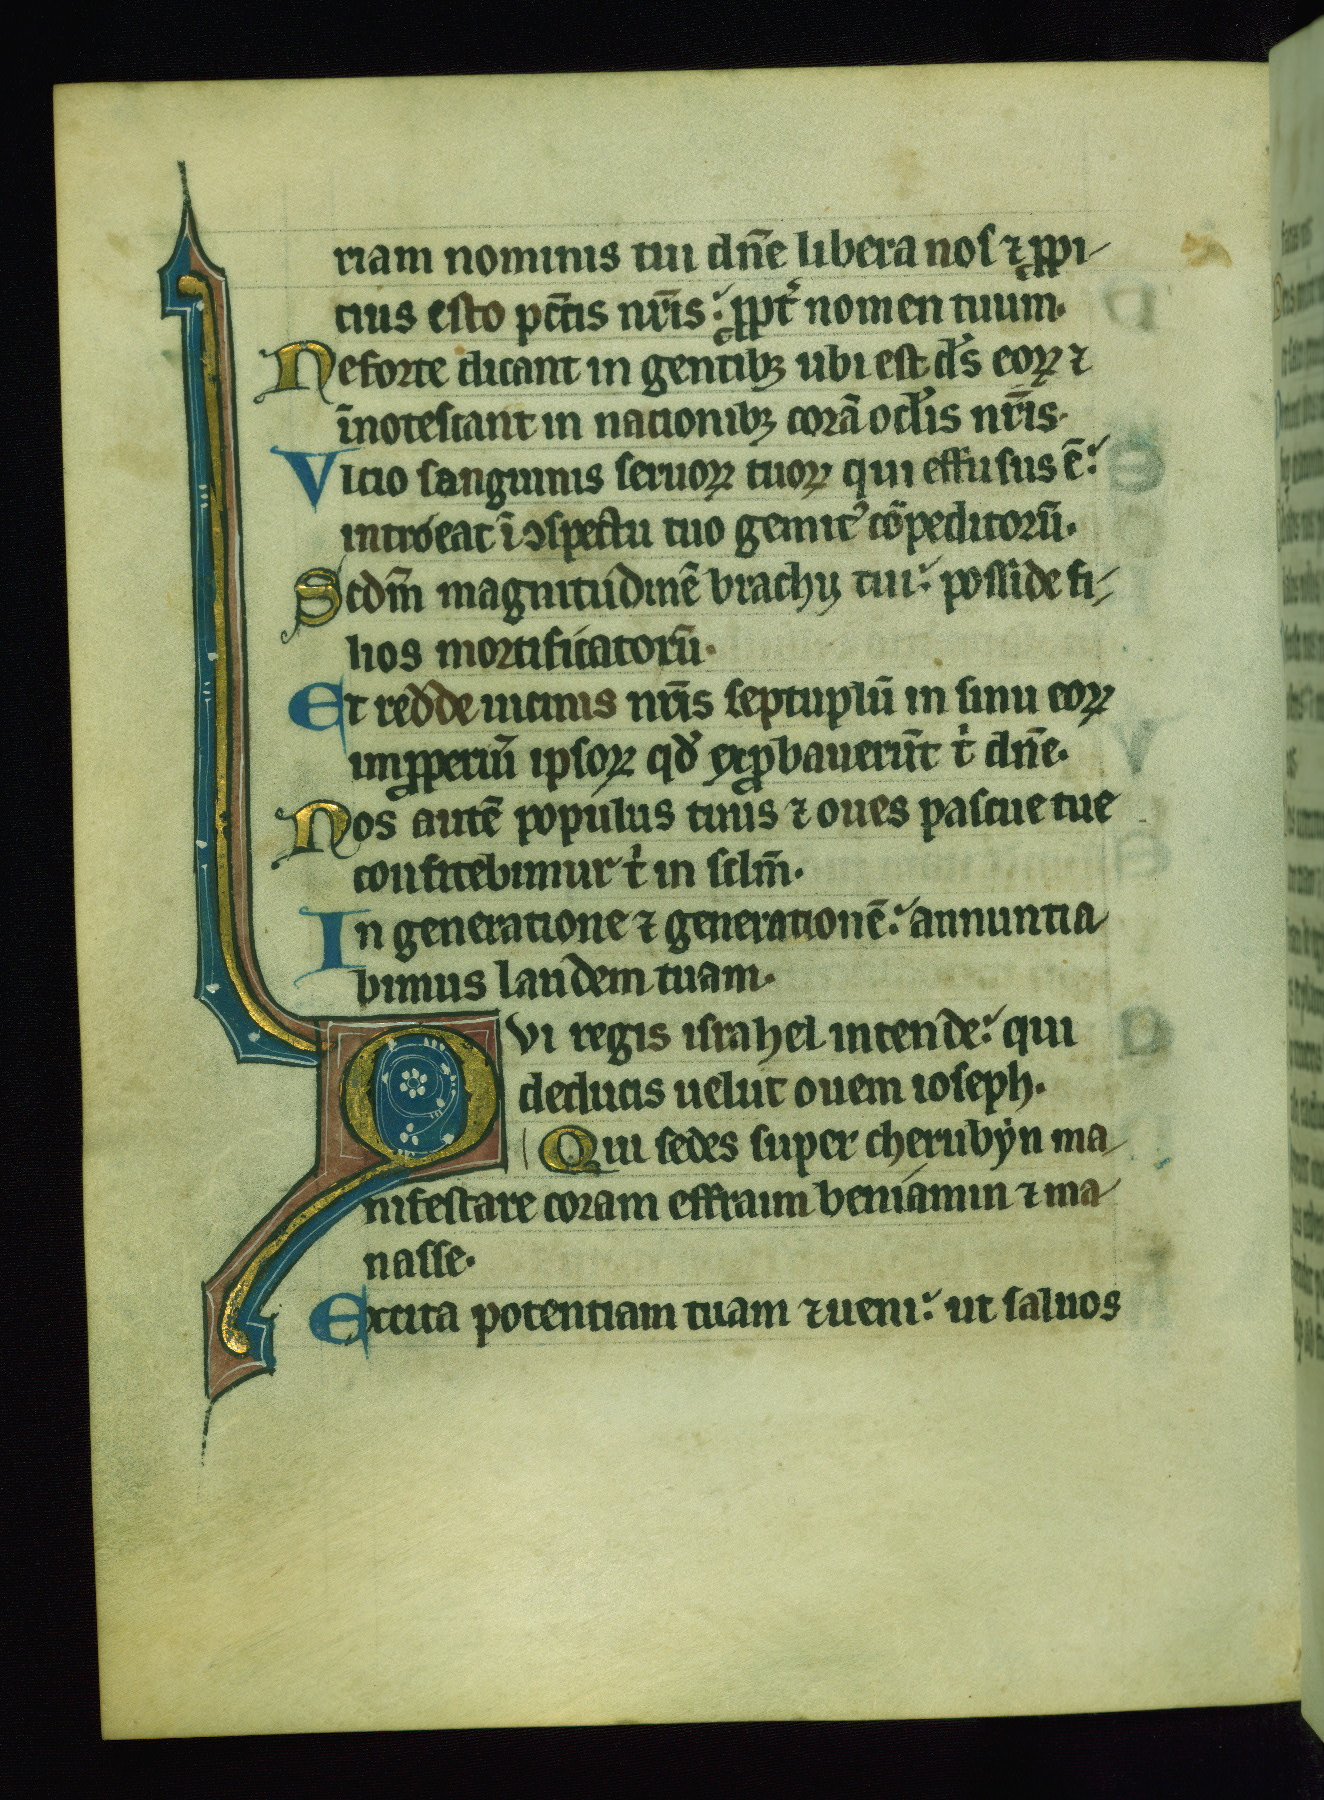 riam nominis tui dn̄e libera nos ⁊ ꝓpi-
cius esto pc̄tis nr̄is: ꝓpt̛ nomen tuum.
Ne forte dicant in gentibꝫ ubi est ds̄ eoꝝ ⁊
īnotescant in nationibꝫ corā oc̄lis nr̄is.
Vltio sanguinis seruoꝝ tuoꝝ qui effusus ē:
introeat ī ↄspectu tuo gemitꝰ cōpeditorū.
Scdm̄ magnitudinē brachij tui: posside fi-
lios mortificatorū.
Et redde uicinis nr̄is septuplū in sinu eoꝝ
imꝓperiū ipsoꝝ qd̄ exꝓbauerūt t̄ dn̄e.
Nos autē populus tuus ⁊ oues pascue tue
confitebimur t̄ in sclm̄.
In generatione ⁊ generationē: annuntia-
bimus laudem tuam.
Qvi regis israhel intende: qui
deducis uelut ouem ioseph.
Qui sedes super cherubyn ma-
nifestare coram effraim beniamin ⁊ ma-
nasse.
Excita potentiam tuam ⁊ ueni: ut saluos